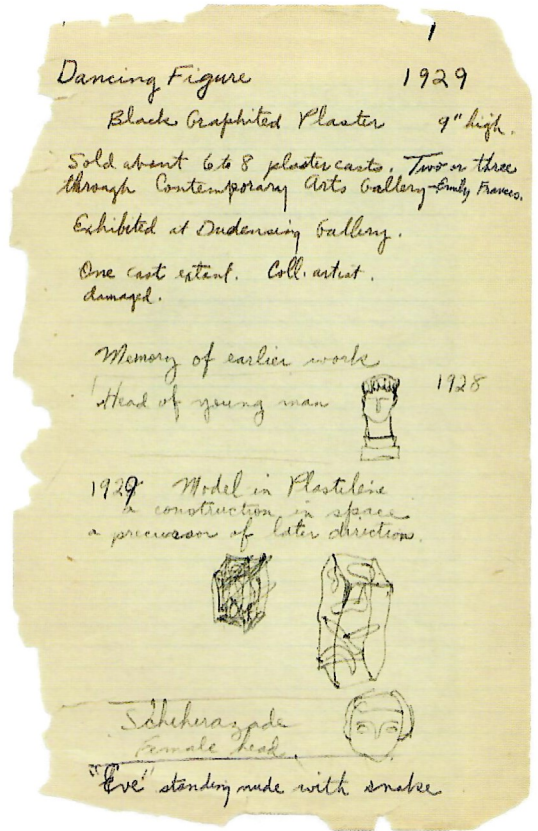 1
Dancing Figure 1929
Black Graphited Plaster 9" high.
Sold about 6 to 8 plaster casts. Two or three
through Contemporary Arts Gallery - Emily Francis.
Exhibited at Dudensing Gallery.
One cast extant. Coll. artist.
damaged.
Memory of earlier work
Head of young man 1928
1929 Model in Plastilene
a construction in space
a precursor of later direction.
Scheherazade
Female head.
"Eve" standing nude with snake